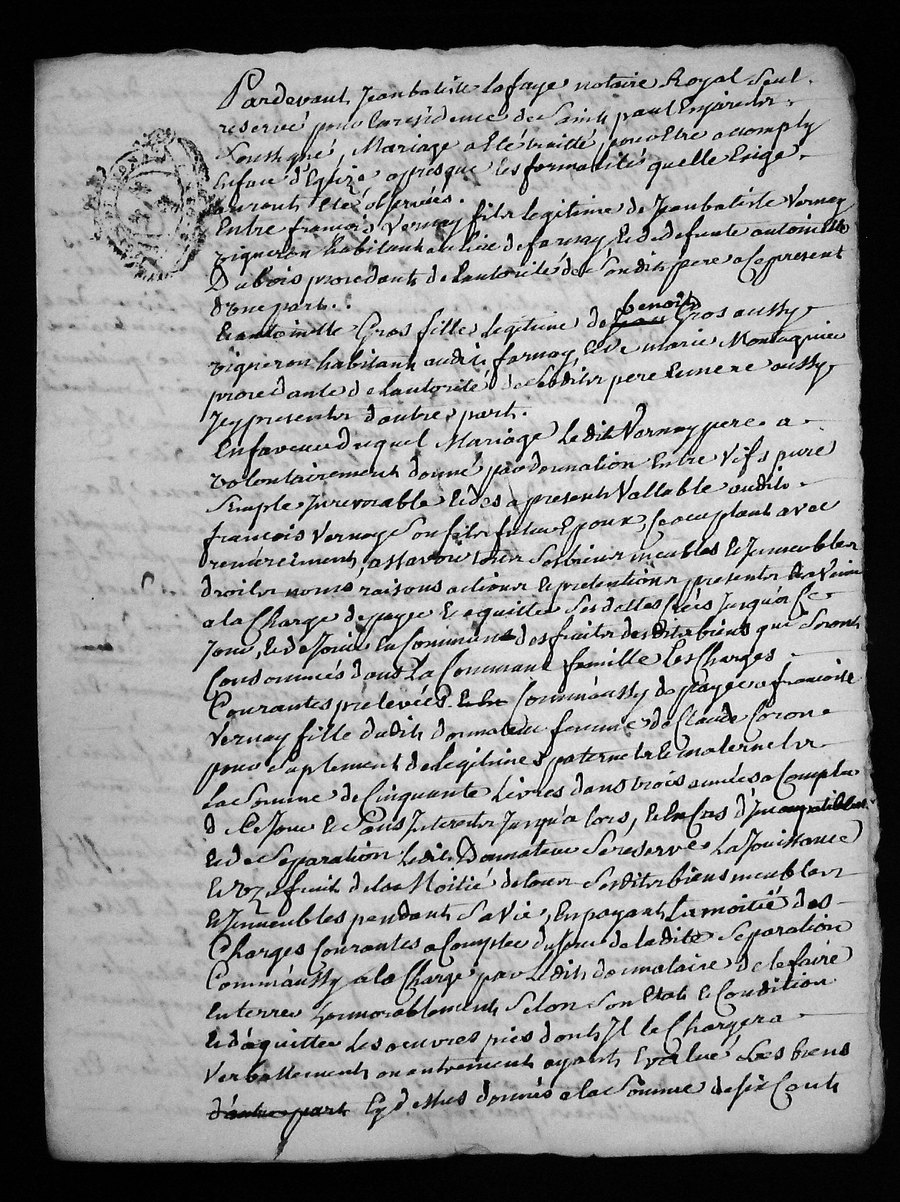 Pardevant Jean batiste Lafaye notaire Royal Seul
reservé pour La residence de Saint paul Enjarestz
Soussigné, Mariage a Eté traitté pour Etre accomply
En face d'Eglize apres que les formalités quelle Exige
auront Eté observées.
Entre françois Vernay fils legitime de Jean batiste Vernay
vigneron habitant au lieu de farnay Et de defunte antoinette
Dubois procedant de Lautorité de Sondit pere a ce present
d'one part.
Et antoinette Gros fille legitime de benoit Gros aussy
vigneron habitant audit farnay, Et de marie Montagnier
procedante de Lautorité de Sesdits pere Et mere aussy
Icy presents dautre part.
En faveur duquel Mariage Ledit Vernay pere a
volontairement donné par donnation Entre Vifs pure
Simple Irrevocable Et des a present Vallable audit
françois Vernay Son fils futur Epoux, Ce acceptant avec
remerciement, assavoir tous Ses biens meubles Et Immeubles
droits noms raisons actions Et pretentions presents Et a Venir
a la Charge de payer Et aquitter Ses dettes Crées Jusqu'a Ce
Jour, Et de Jouir En Commun des fruits desdits biens qui Seront
Consommés dans La Commune famille Les Charges
Courantes prelevées Comm'aussy de payer a françoise
Vernay fille dudit donnateur femme de Claude Coron
pour Suplement de legitimes paternelle Et maternelle
La Somme de Cinquante Livres dans trois années a Compter
de Ce Jour Et Sans Interets Jusqu'a lors, Et En Cas d'Incompatibilité
Et de Separation Ledit Donnateur Se reserve La Jouissance
Et Uzufruit de la Moitié de tous Sesdits biens meubles
Et Immeubles pendant Sa Vie, En payant La moitié des
Charges Courantes a Compter du Jour de ladite Separation
Comm'aussy a la Charge par Ledit donnataire de le faire
Enterrer honnorablement Selon Son Etat Et Condition
Et d'aquitter Les oeuvres pies dont Il le Chargera
Verballement ou autrement ayant Evalué Les biens
d'autre part Cy dessus donnés a la Somme de Six Cents